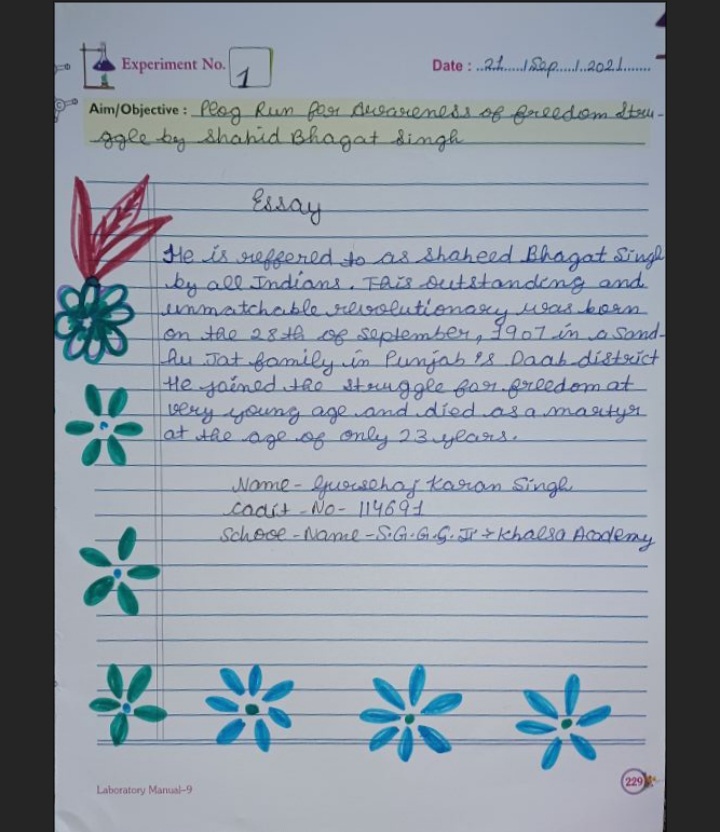 Experiment No. 1
Date : 21 / Sep / 2021
Aim/Objective : Plog Run for Awareness of freedom Stru-
ggle by Shahid Bhagat Singh
Essay
He is reffered to as Shaheed Bhagat Singh
by all Indians. This outstanding and
unmatchable revolutionary was born
on the 28th of September, 1907 in a Sand-
hu Jat family in Punjab's Doab district
He joined the struggle for freedom at
very young age and died as a martyr
at the age of only 23 years.
Name - Gursehaj Karan Singh
Cadit - No - 114691
School - Name - S.G.G.G. Khalsa Academy
229
Laboratory Manual-9